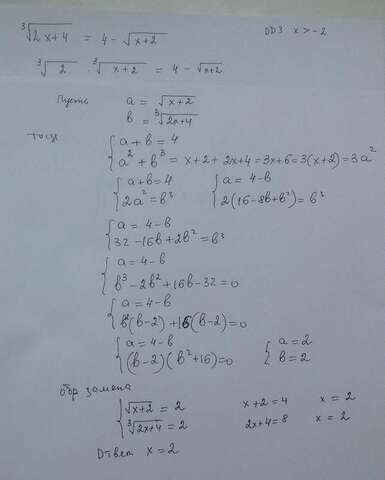 ∛(2x+4) = 4 - √(x+2) ОДЗ x > -2
∛2 · ∛(x+2) = 4 - √(x+2)
Пусть a = √(x+2)
b = ∛(2x+4)
тогда { a+b = 4
a² + b³ = x+2 + 2x+4 = 3x+6 = 3(x+2) = 3a²
{ a+b = 4 { a = 4-b
2a² = b³ 2(16-8b+b²) = b³
{ a = 4-b
32 - 16b + 2b² = b³
{ a = 4-b
b³ - 2b² + 16b - 32 = 0
{ a = 4-b
b²(b-2) + 16(b-2) = 0
{ a = 4-b { a = 2
(b-2)(b²+16) = 0 b = 2
обр замена
{ √(x+2) = 2 x+2 = 4 x = 2
∛(2x+4) = 2 2x+4 = 8 x = 2
Ответ x = 2